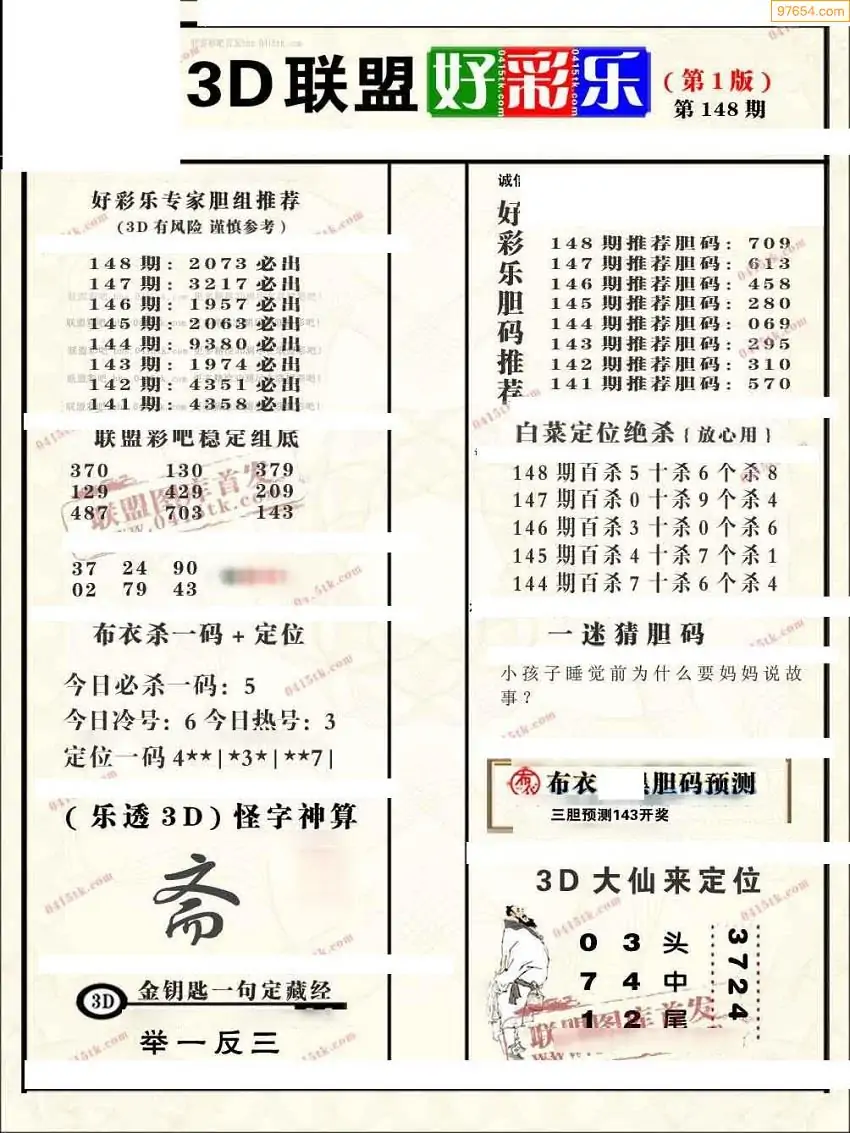 97654.com
3D联盟好彩乐
(第1版)
第148期
好彩乐专家胆组推荐
(3D有风险 谨慎参考)
148期: 2073必出
147期: 3217必出
146期: 1957必出
145期: 2063必出
144期: 9380必出
143期: 1974必出
142期: 4351必出
141期: 4358必出
联盟彩吧稳定组底
370 130 379
129 429 209
487 703 143
37 24 90
02 79 43
布衣杀一码+定位
今日必杀一码: 5
今日冷号: 6 今日热号: 3
定位一码 4**|*3*|**7|
(乐透3D)怪字神算
斋
3D 金钥匙一句定藏经
举一反三
好彩乐胆码推荐
148期推荐胆码: 709
147期推荐胆码: 613
146期推荐胆码: 458
145期推荐胆码: 280
144期推荐胆码: 069
143期推荐胆码: 295
142期推荐胆码: 310
141期推荐胆码: 570
白菜定位绝杀{放心用}
148期百杀5十杀6个杀8
147期百杀0十杀9个杀4
146期百杀3十杀0个杀6
145期百杀4十杀7个杀1
144期百杀7十杀6个杀4
一迷猜胆码
小孩子睡觉前为什么要妈妈说故
事?
布衣 胆码预测
三胆预测143开奖
3D大仙来定位
0 3 头
7 4 中
1 2 尾
3724
联盟图库首发
www.0415tk.com
0415tk.com